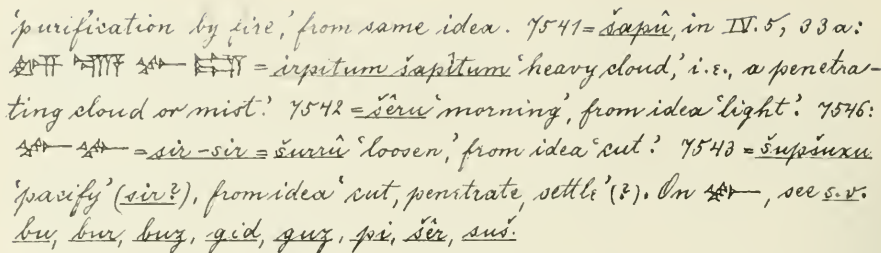 'purification by fire,' from same idea. 7541 = šapû, in IV. 5, 33 a:
= irpitum šapîtum 'heavy cloud,' i.e., a penetra-
ting cloud or mist'. 7542 = šêru 'morning', from idea 'light'. 7546:
= sir-sir = šurrû 'loosen,' from idea 'cut'. 7543 = šupšuxu
'pacify' (sir?), from idea 'cut, penetrate, settle' (?). On , see s.v.
bu, bur, buz, gid, guz, pi, šêr, suš.